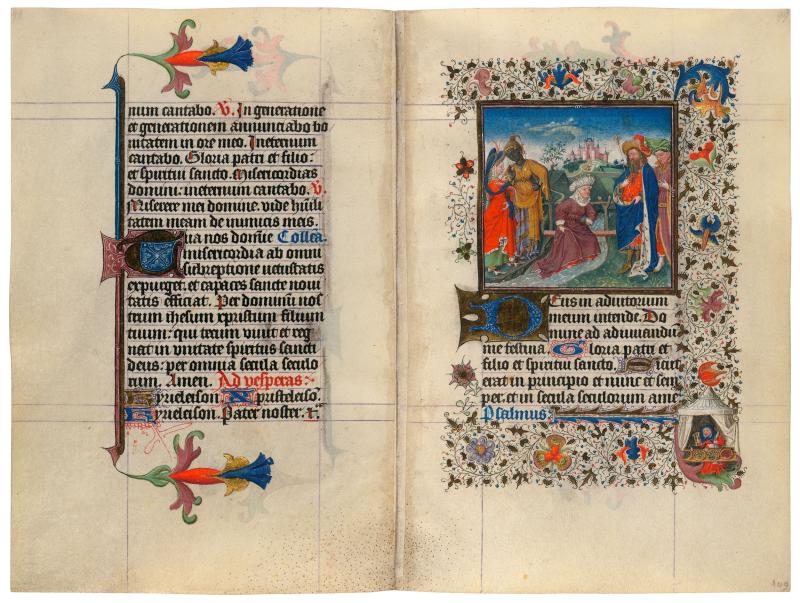 num cantabo. V. In generatione
et generationem annunciabo ve
ritatem in ore meo. Ineternum
cantabo. Gloria patri et filio:
et spiritui sancto. Misericordias
domini: ineternum cantabo. V.
Miserere mei domine. vide humili
tatem meam de inimicis meis.
Tua nos domine Collecta.
misericordia ab omni
subreptione vetustatis
expurget. et capaces sancte novi
tatis efficiat. Per dominum nos
trum ihesum xpristum filium
tuum: qui tecum vivit et reg
nat in unitate spiritus sancti
deus: per omnia secula seculo
rum. Amen. Ad vesperas:
Kyrieleison Xpristeleison.
Kyrieleison. Pater noster.
Deus in adiutorium
meum intende. Do
mine ad adiuvandu
me festina. Gloria patri et
filio et spiritui sancto. Sicut
erat in principio et nunc et sem
per. et in secula seculorum ame
Psalmus:
109